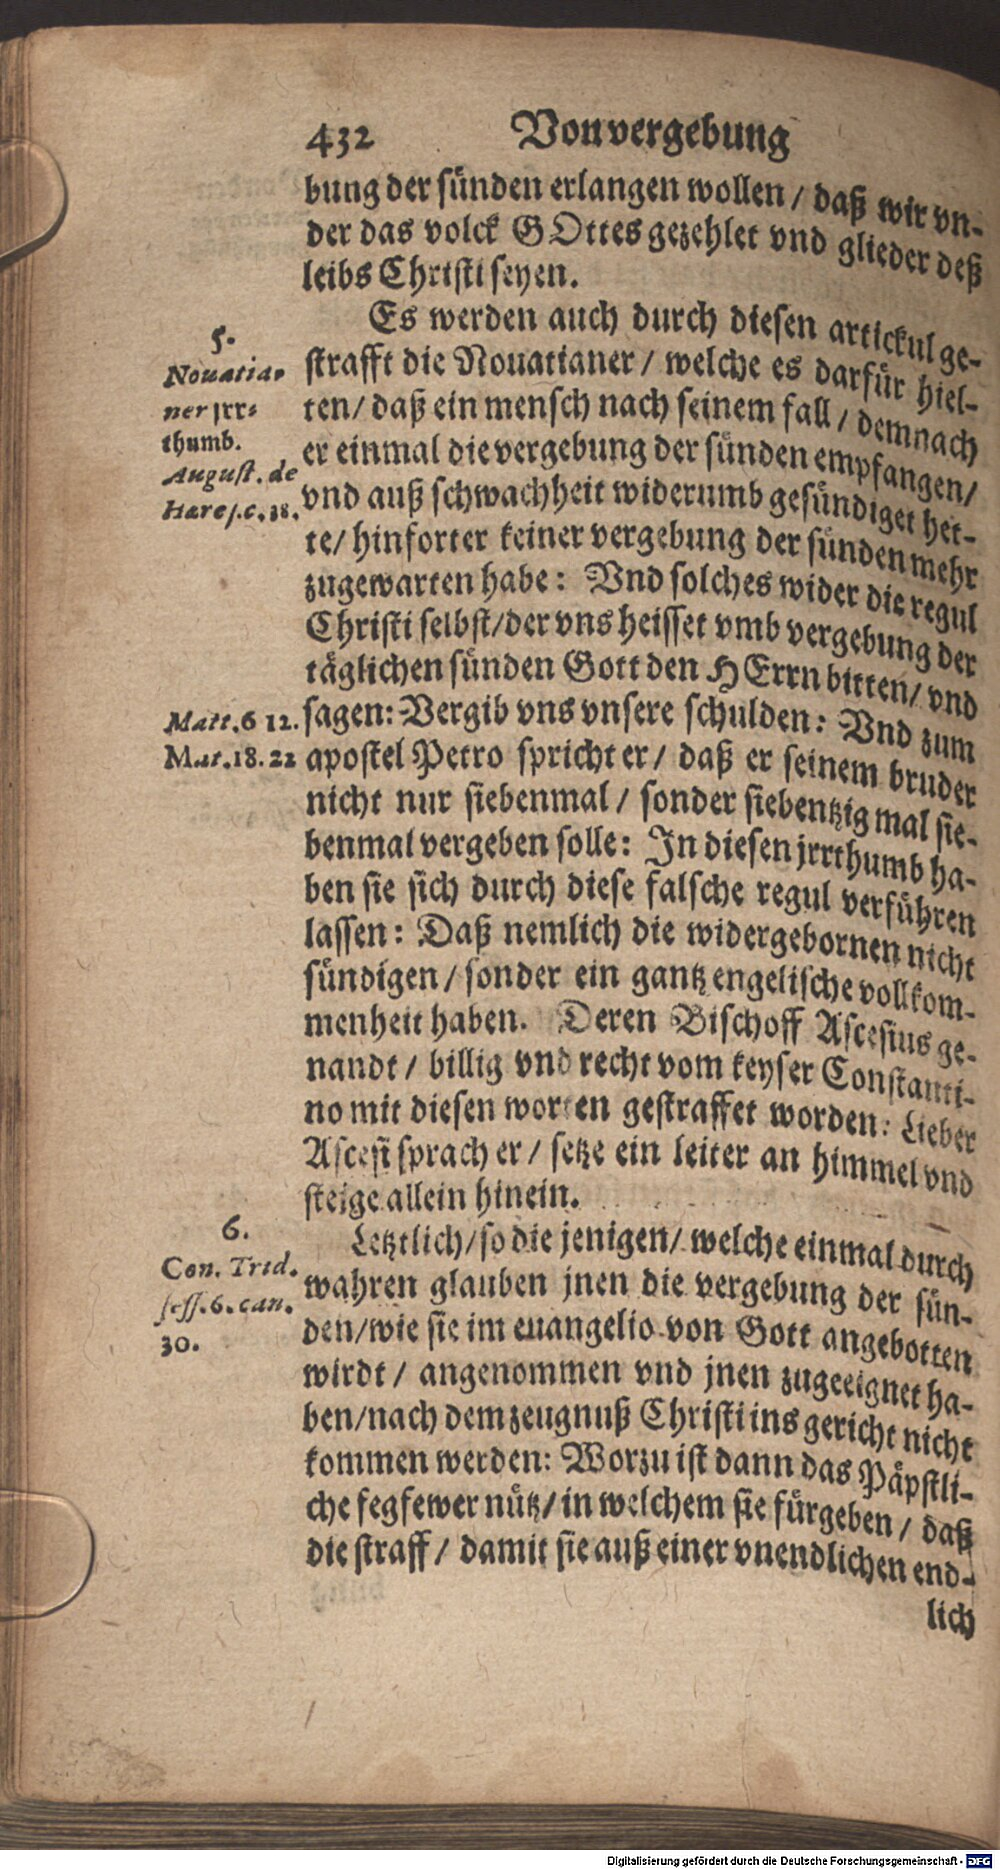 432 Von vergebung
bung der sünden erlangen wollen / daß wir vn-
der das volck GOttes gezehlet vnd glieder deß
leibs Christi seyen.
Es werden auch durch diesen artickul ge-
strafft die Nouatianer / welche es darfür hiel-
ten / daß ein mensch nach seinem fall / demnach
er einmal die vergebung der sünden empfangen /
vnd auß schwachheit widerumb gesündiget het-
te / hinforter keiner vergebung der sünden mehr
zugewarten habe: Vnd solches wider die regul
Christi selbst / der vns heisset vmb vergebung der
täglichen sünden Gott den HErrn bitten / vnd
sagen: Vergib vns vnsere schulden: Vnd zum
apostel Petro spricht er / daß er seinem bruder
nicht nur siebenmal / sonder siebentzig mal sie-
benmal vergeben solle: In diesen jrrthumb ha-
ben sie sich durch diese falsche regul verführen
lassen: Daß nemlich die widergebornen nicht
sündigen / sonder ein gantz engelische vollkom-
menheit haben. Deren Bischoff Ascesius ge-
nandt / billig vnd recht vom keyser Constanti-
no mit diesen worten gestraffet worden: Lieber
Ascesi sprach er / setze ein leiter an himmel vnd
steige allein hinein.
Letztlich / so die jenigen / welche einmal durch
wahren glauben jnen die vergebung der sün-
den / wie sie im euangelio von Gott angebotten
wirdt / angenommen vnd jnen zugeeignet ha-
ben / nach dem zeugnuß Christi ins gericht nicht
kommen werden: Worzu ist dann das Päpstli-
che fegfewer nütz / in welchem sie fürgeben / daß
die straff / damit sie auß einer vnendlichen end-
lich
5.
Nouatia-
ner jrr-
thumb.
August. de
Hares. c. 38.
Matt. 6 12.
Mat. 18. 22
6.
Con. Trid.
sess. 6. can.
30.
Digitalisierung gefördert durch die Deutsche Forschungsgemeinschaft - DFG